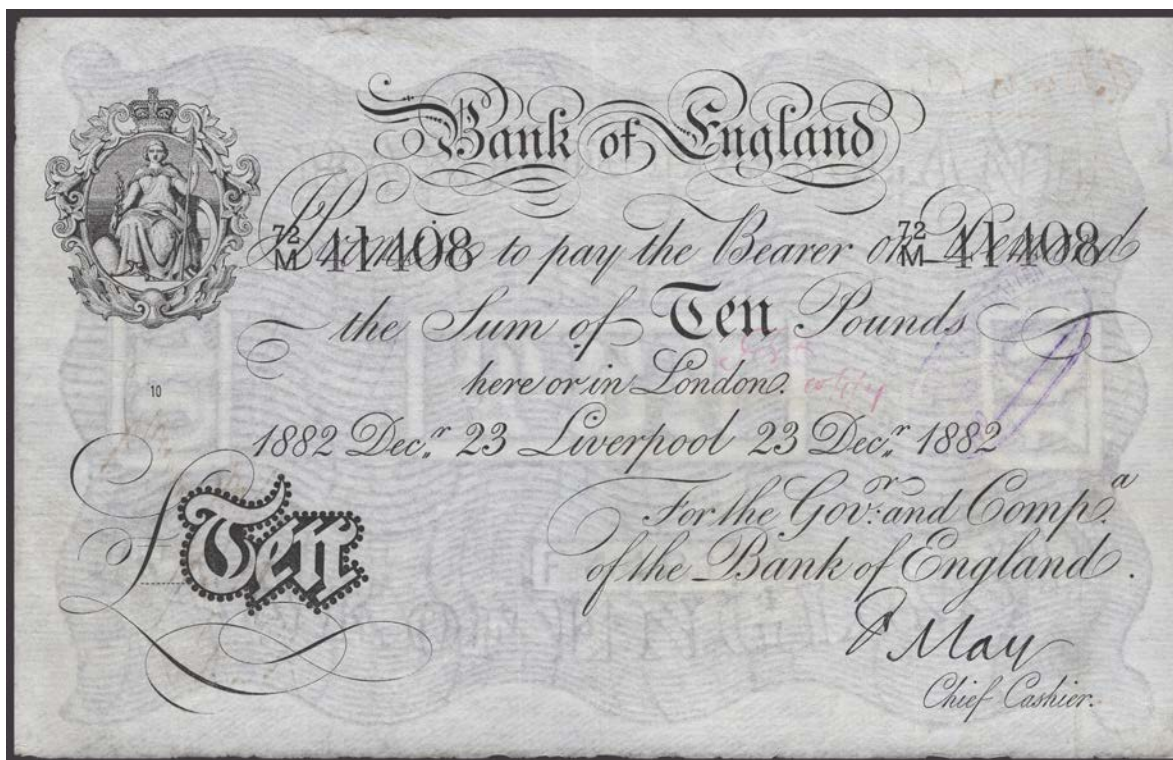 Bank of England
I Promise to pay the Bearer on Demand
72/M 41408 72/M 41408
the Sum of Ten Pounds
here or in London.
10
1882 Decr. 23 Liverpool 23 Decr. 1882
For the Govr. and Compa.
of the Bank of England.
£Ten
F May
Chief Cashier.